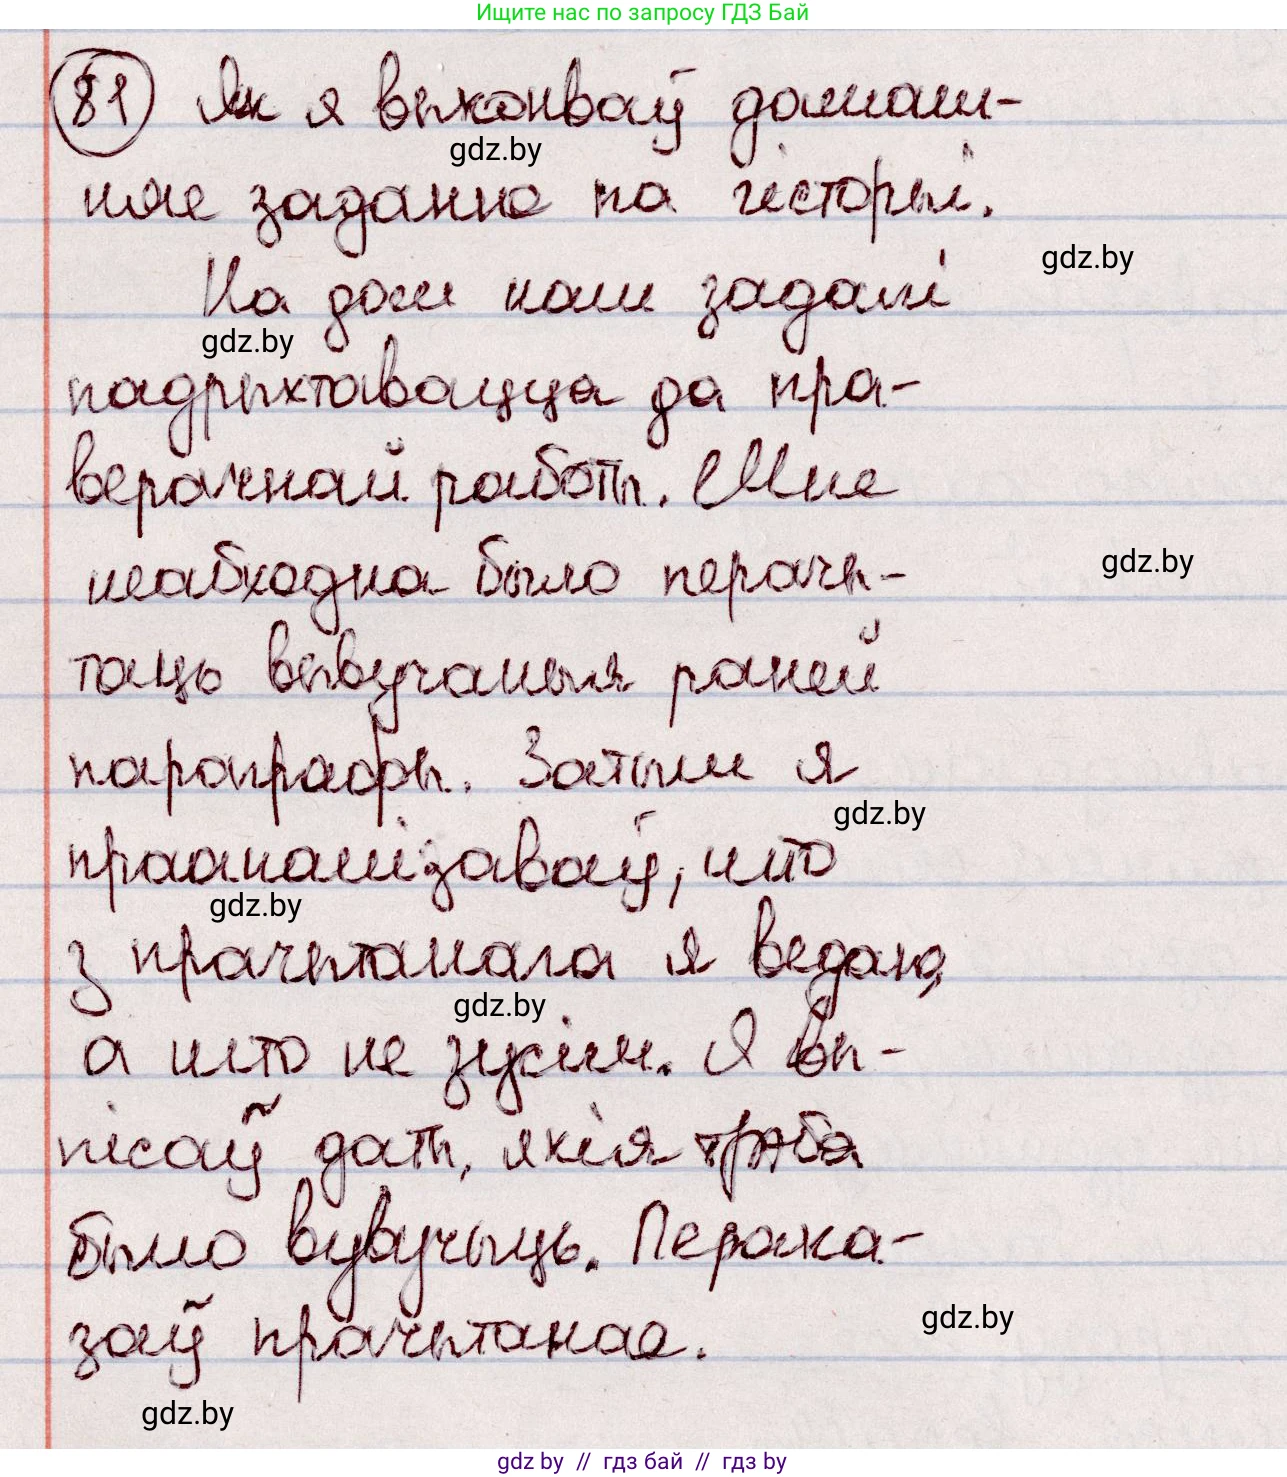 Ищите нас по запросу ГДЗ Бай
81 Як я выконваў дамаш-
gdz.by
няе заданне па гісторыі.
gdz.by
На дом нам задалі
gdz.by
падрыхтавацца да пра-
верачнай работы. Мне
неабходна было перачы-
gdz.by
таць вывучаныя раней
параграфы. Затым я
gdz.by
прааналізаваў, што
gdz.by
з прачытанага я ведаю,
gdz.by
а што не зусім. Я вы-
пісаў даты, якія трэба
было вувучыць. Перака-
заў прачытанае.
gdz.by
gdz.by
gdz by // гдз бай // гдз by